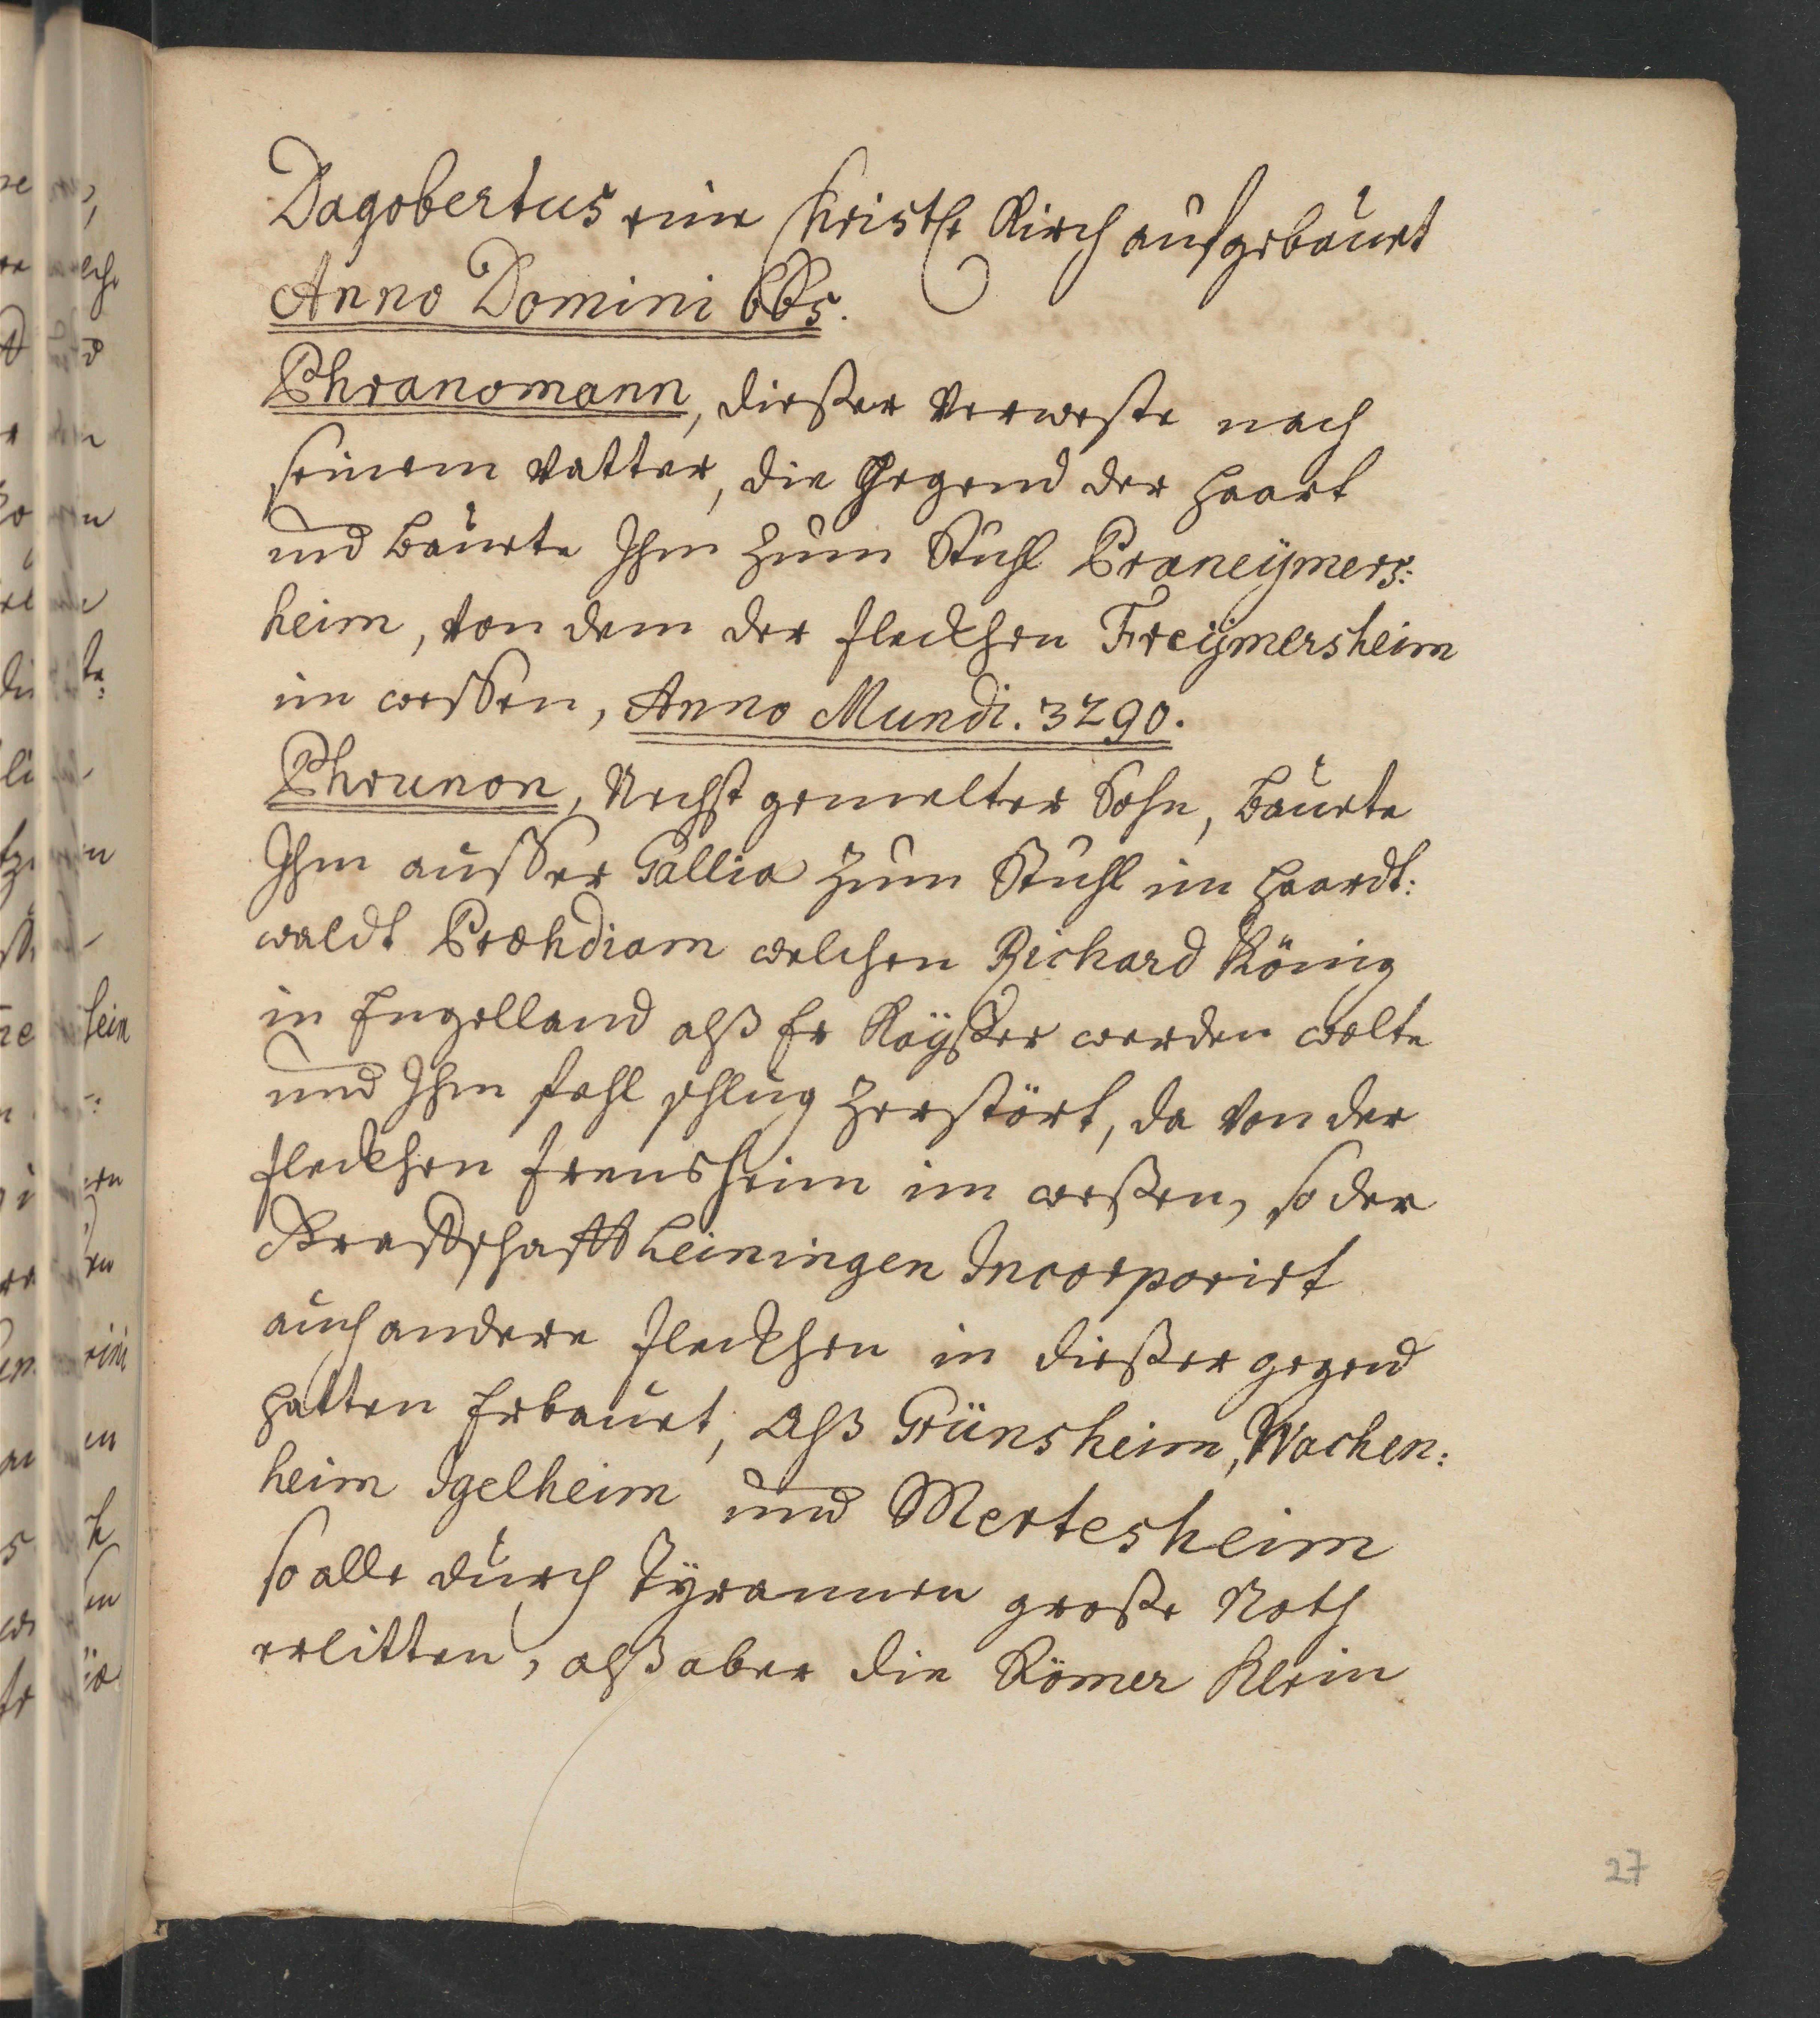 Dagobertus eine Christl: Kirch aufgebauet
Anno Domini 665.
Phranomann, dießer verweste nach
seinem Vatter, die Gegend der Haart
und bauete Ihm zum Stuhl Praneÿmers:
heim, von dem der fleckhen Freÿmersheim
im wessen, Anno Mundi. 3290.
Phrunon, Nechst gemelter Sohn, bauete
Ihm ausser Gallia zum Stuhl im Haardt:
waldt Præhdiam welchen Richard König
in Engelland alß Er Kaÿßer werden wolte
und Ihm fehl schlug zerstört, da von der
fleckhen frensheim im weßen, so der
Graffschafft Leiningen Incorporirt
auch andere fleckhen in dießer gegend
hatten Erbauet, Alß Grünsheim, Wachen:
heim Igelheim und Mertesheim
so alle durch Tÿrannen große Noth
erlitten, alß aber die Römer klein
27